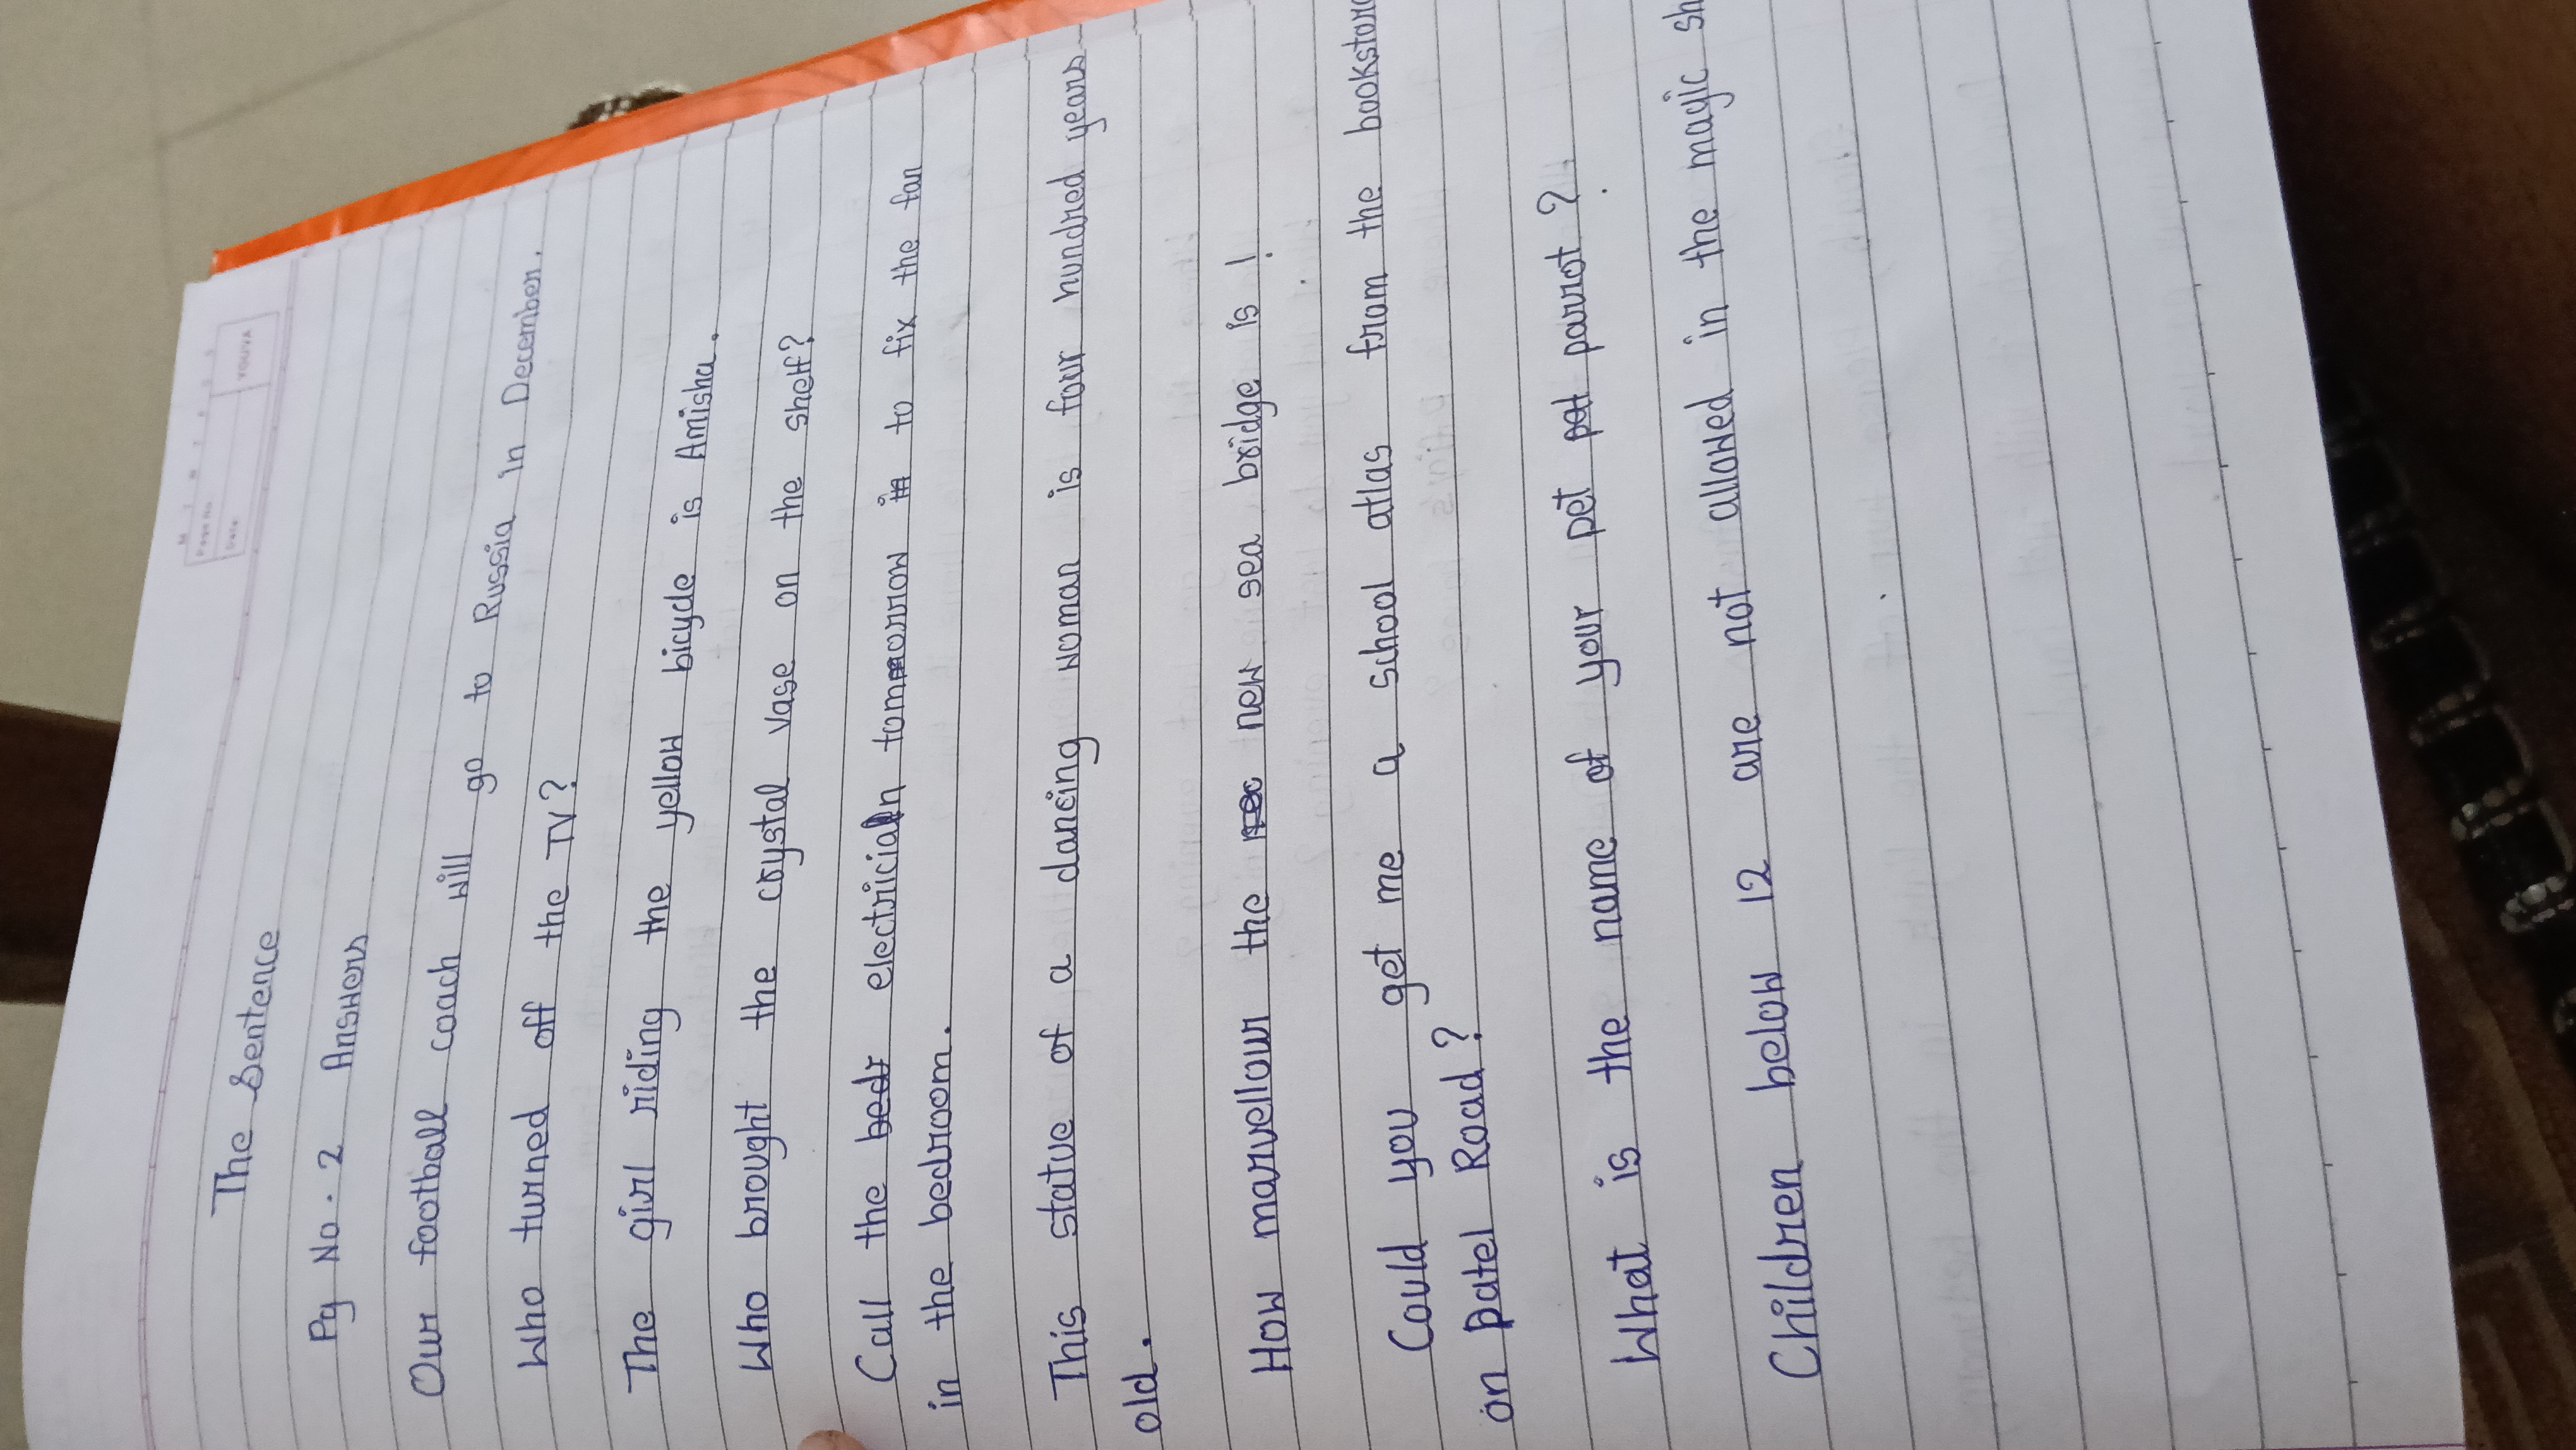 Page No.
Date
YOUVA
The Sentence
Pg No. 2 Answers
Our football coach will go to Russia in December.
Who turned off the TV?
The girl riding the yellow bicycle is Amisha.
Who brought the crystal vase on the shelf?
Call the bedr electrician tomorrow in to fix the fan
in the bedroom.
This statue of a dancing woman is four hundred years
old.
How marvellour the new sea bridge is!
Could you get me a school atlas from the bookstore
on patel Road?
What is the name of your pet pat parrot?
Children below 12 are not allowed in the magic sh